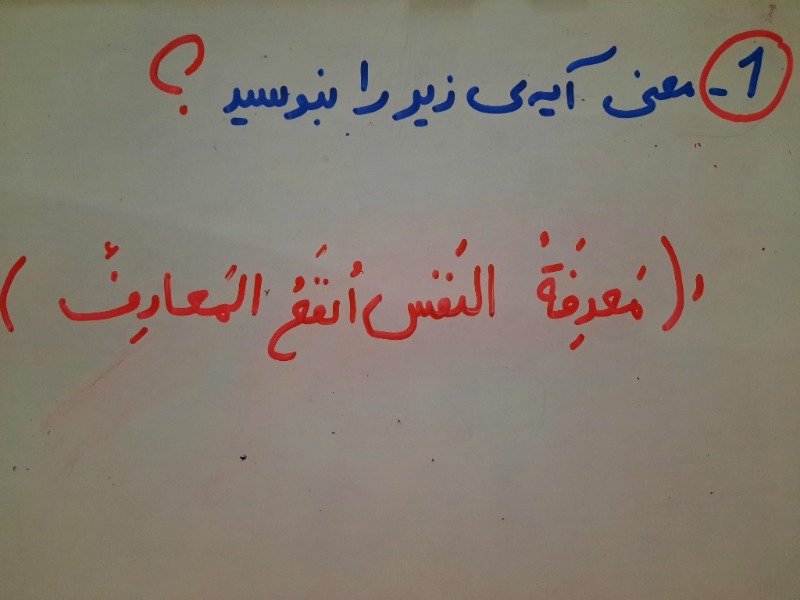 1- معنی آیه‌ی زیر را بنویسید ؟
(مَعرِفَةُ النَفسِ أنفَعُ المَعارِفْ)